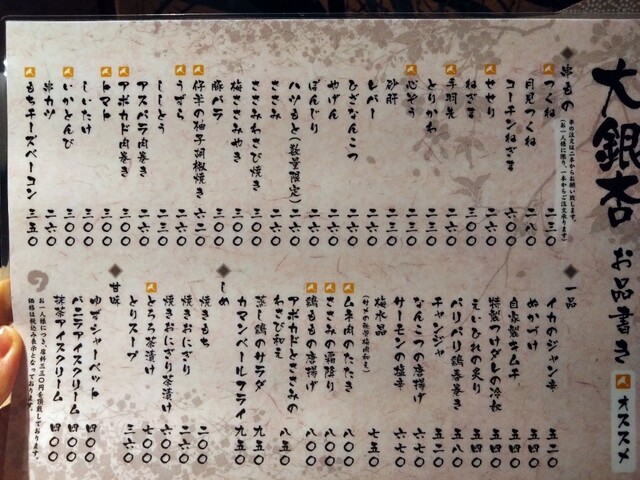 大銀杏 お品書き
オススメ
串もの
串の注文は二本からお願い致します。
(お一人様に限り、一本からご注文承ります)
つくね 二三〇
月見つくね 二八〇
コーチンねぎま 六〇〇
せせり 二六〇
ねぎま
手羽先
とりかわ
心ぞう
砂肝
レバー
ひざなんこつ
やげん
ぼんじり
ハツもと(数量限定)
ささみ
ささみわさび焼き 三〇〇
梅ささみやき 三〇〇
豚バラ
仔羊の柚子胡椒焼き 六二〇
うずら
ししとう
アスパラ肉巻き
アボカド肉巻き 三〇〇
トマト
しいたけ
いかとんび 三〇〇
串カツ
もちチーズベーコン 三五〇
一品
イカのジャン辛 五二〇
ぬかづけ
自家製キムチ 五四〇
特製つけダレの冷奴 五四〇
えいひれの炙り
パリパリ鶏春巻き 五八〇
チャンジャ 五二〇
なんこつの唐揚げ 六七〇
サーモンの塩辛 六七〇
梅水晶 七五〇
ムネ肉のたたき 八〇〇
ささみの霜降り 八〇〇
鶏ももの唐揚げ 八〇〇
アボカドとささみの
わさび和え 八五〇
蒸し鶏のサラダ 九五〇
カマンベールフライ 九五〇
しめ
焼きもち 二〇〇
焼きおにぎり 二六〇
焼きおにぎり茶漬け 六〇〇
とろろ茶漬け 七〇〇
とりスープ 三六〇
甘味
ゆずシャーベット 四〇〇
バニラアイスクリーム 四〇〇
抹茶アイスクリーム 四〇〇
お一人様につき、席料三三〇円を頂戴しております。
価格は税込み表示となっております。